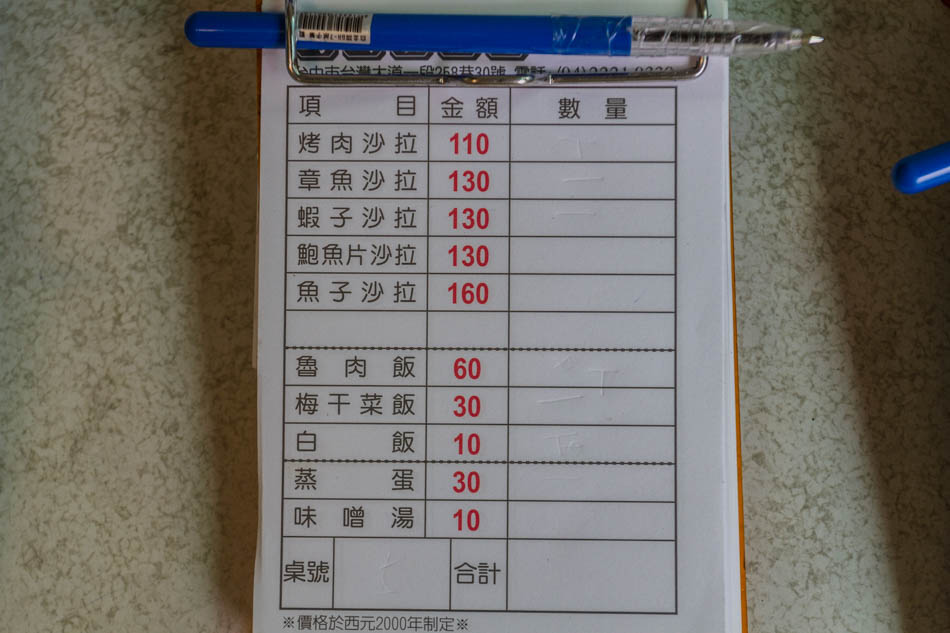 台中市台灣大道一段258巷30號 電話
項目 金額 數量
烤肉沙拉 110
章魚沙拉 130
蝦子沙拉 130
鮑魚片沙拉 130
魚子沙拉 160
魯肉飯 60
梅干菜飯 30
白飯 10
蒸蛋 30
味噌湯 10
桌號 合計
※價格於西元2000年制定※